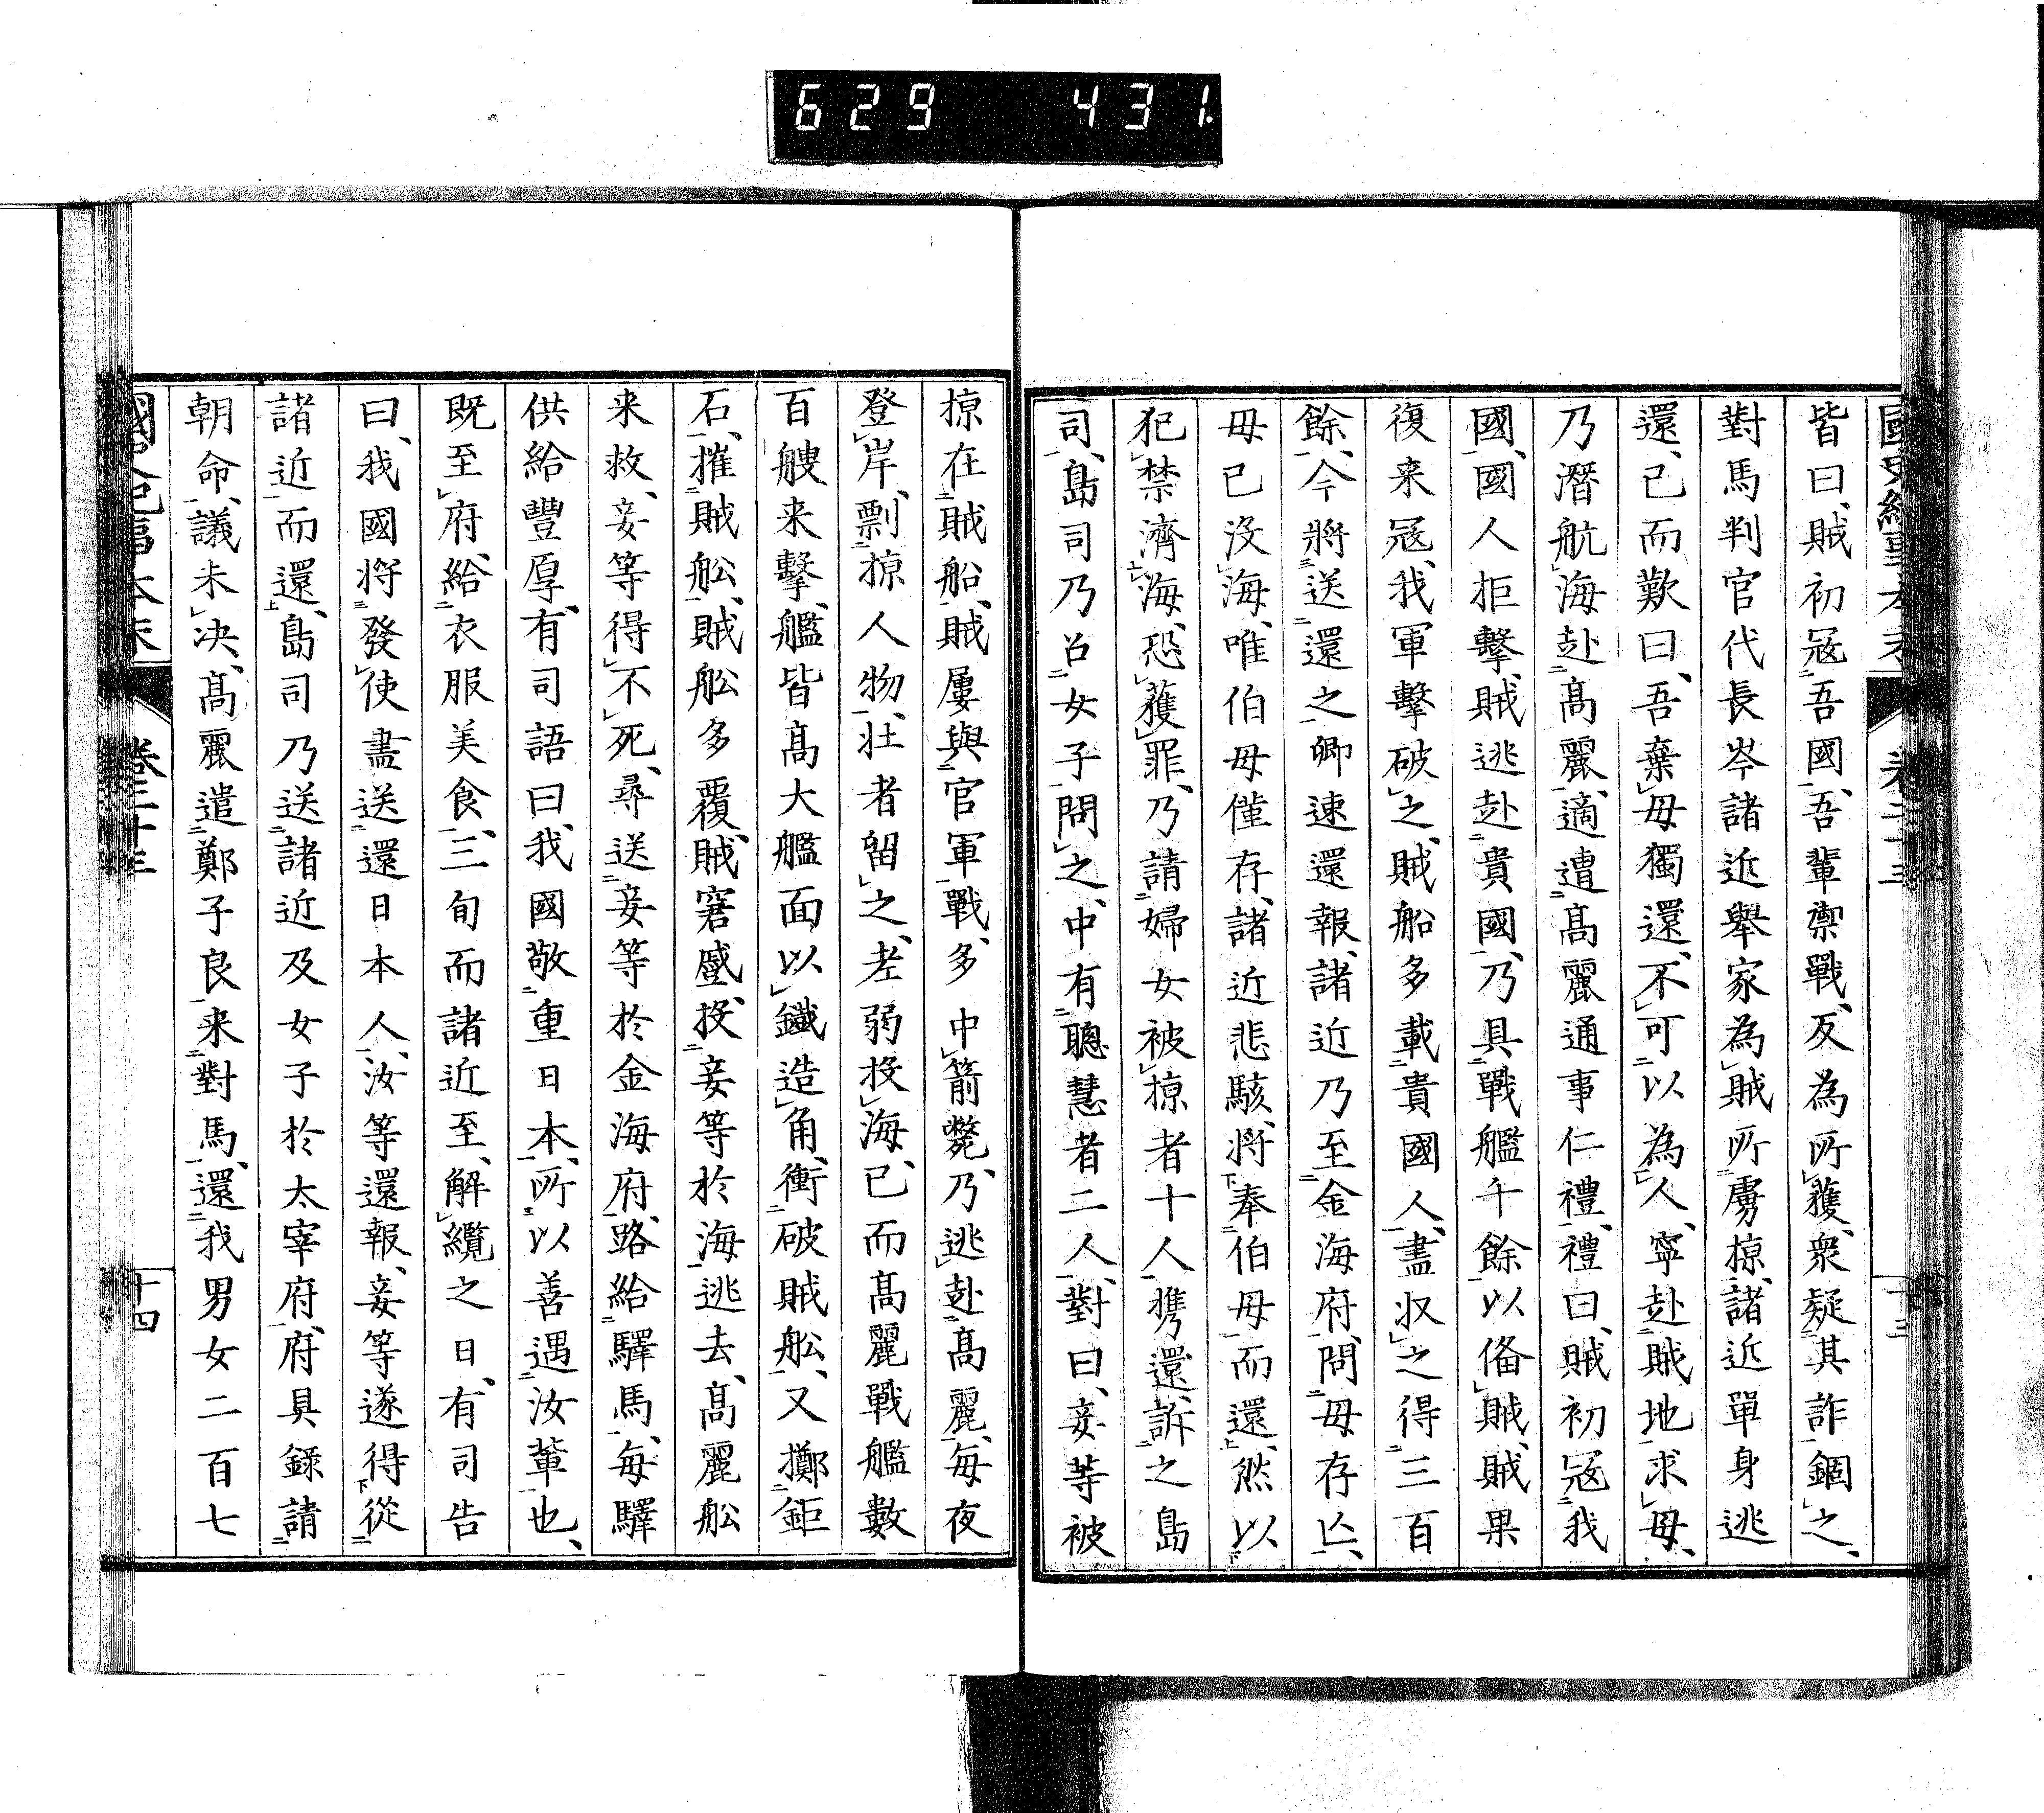 629 431
國史紀事本末 卷二十三 十三
皆曰、賊初冦吾國、吾輩禦戰、反為所獲、衆疑其詐錮之、
對馬判官代長岑諸近舉家為賊所虜掠、諸近單身逃
還、已而歎曰、吾棄母獨還、不可以為人、寧赴賊地求母、
乃潛航海赴高麗、適遭高麗通事仁禮、禮曰、賊初冦我
國、國人拒擊、賊逃赴貴國、乃具戰艦千餘以俻賊、賊果
復来冦、我軍擊破之、賊船多載貴國人、盡収之得三百
餘、今將送還之、卿速還報、諸近乃至金海府、問母存亡、
母已没海、唯伯母僅存、諸近悲駭、將奉伯母而還、然以
犯禁濟海、恐獲罪、乃請婦女被掠者十人携還、訴之島
司、島司乃召女子問之、中有聰慧者二人、對曰、妾等被
掠在賊船、賊屢與官軍戰、多中箭斃、乃逃赴高麗、每夜
登岸、剽掠人物、壮者留之、老弱投海、已而高麗戰艦數
百艘来擊、艦皆高大艦面以鐵造角、衝破賊舩、又擲鉅
石、摧賊舩、賊舩多覆、賊窘蹙、投妾等於海逃去、高麗舩
来救、妾等得不死、尋送妾等於金海府、路給驛馬、每驛
供給豐厚、有司語曰、我國敬重日本、所以善遇汝輩也、
既至府、給衣服美食、三旬而諸近至、解纜之日、有司告
曰、我國將發使盡送還日本人、汝等還報、妾等遂得從
諸近而還、島司乃送諸近及女子於太宰府、府具錄請
朝命、議未决、高麗遣鄭子良来對馬、還我男女二百七
國史紀事本末 卷二十三 十四